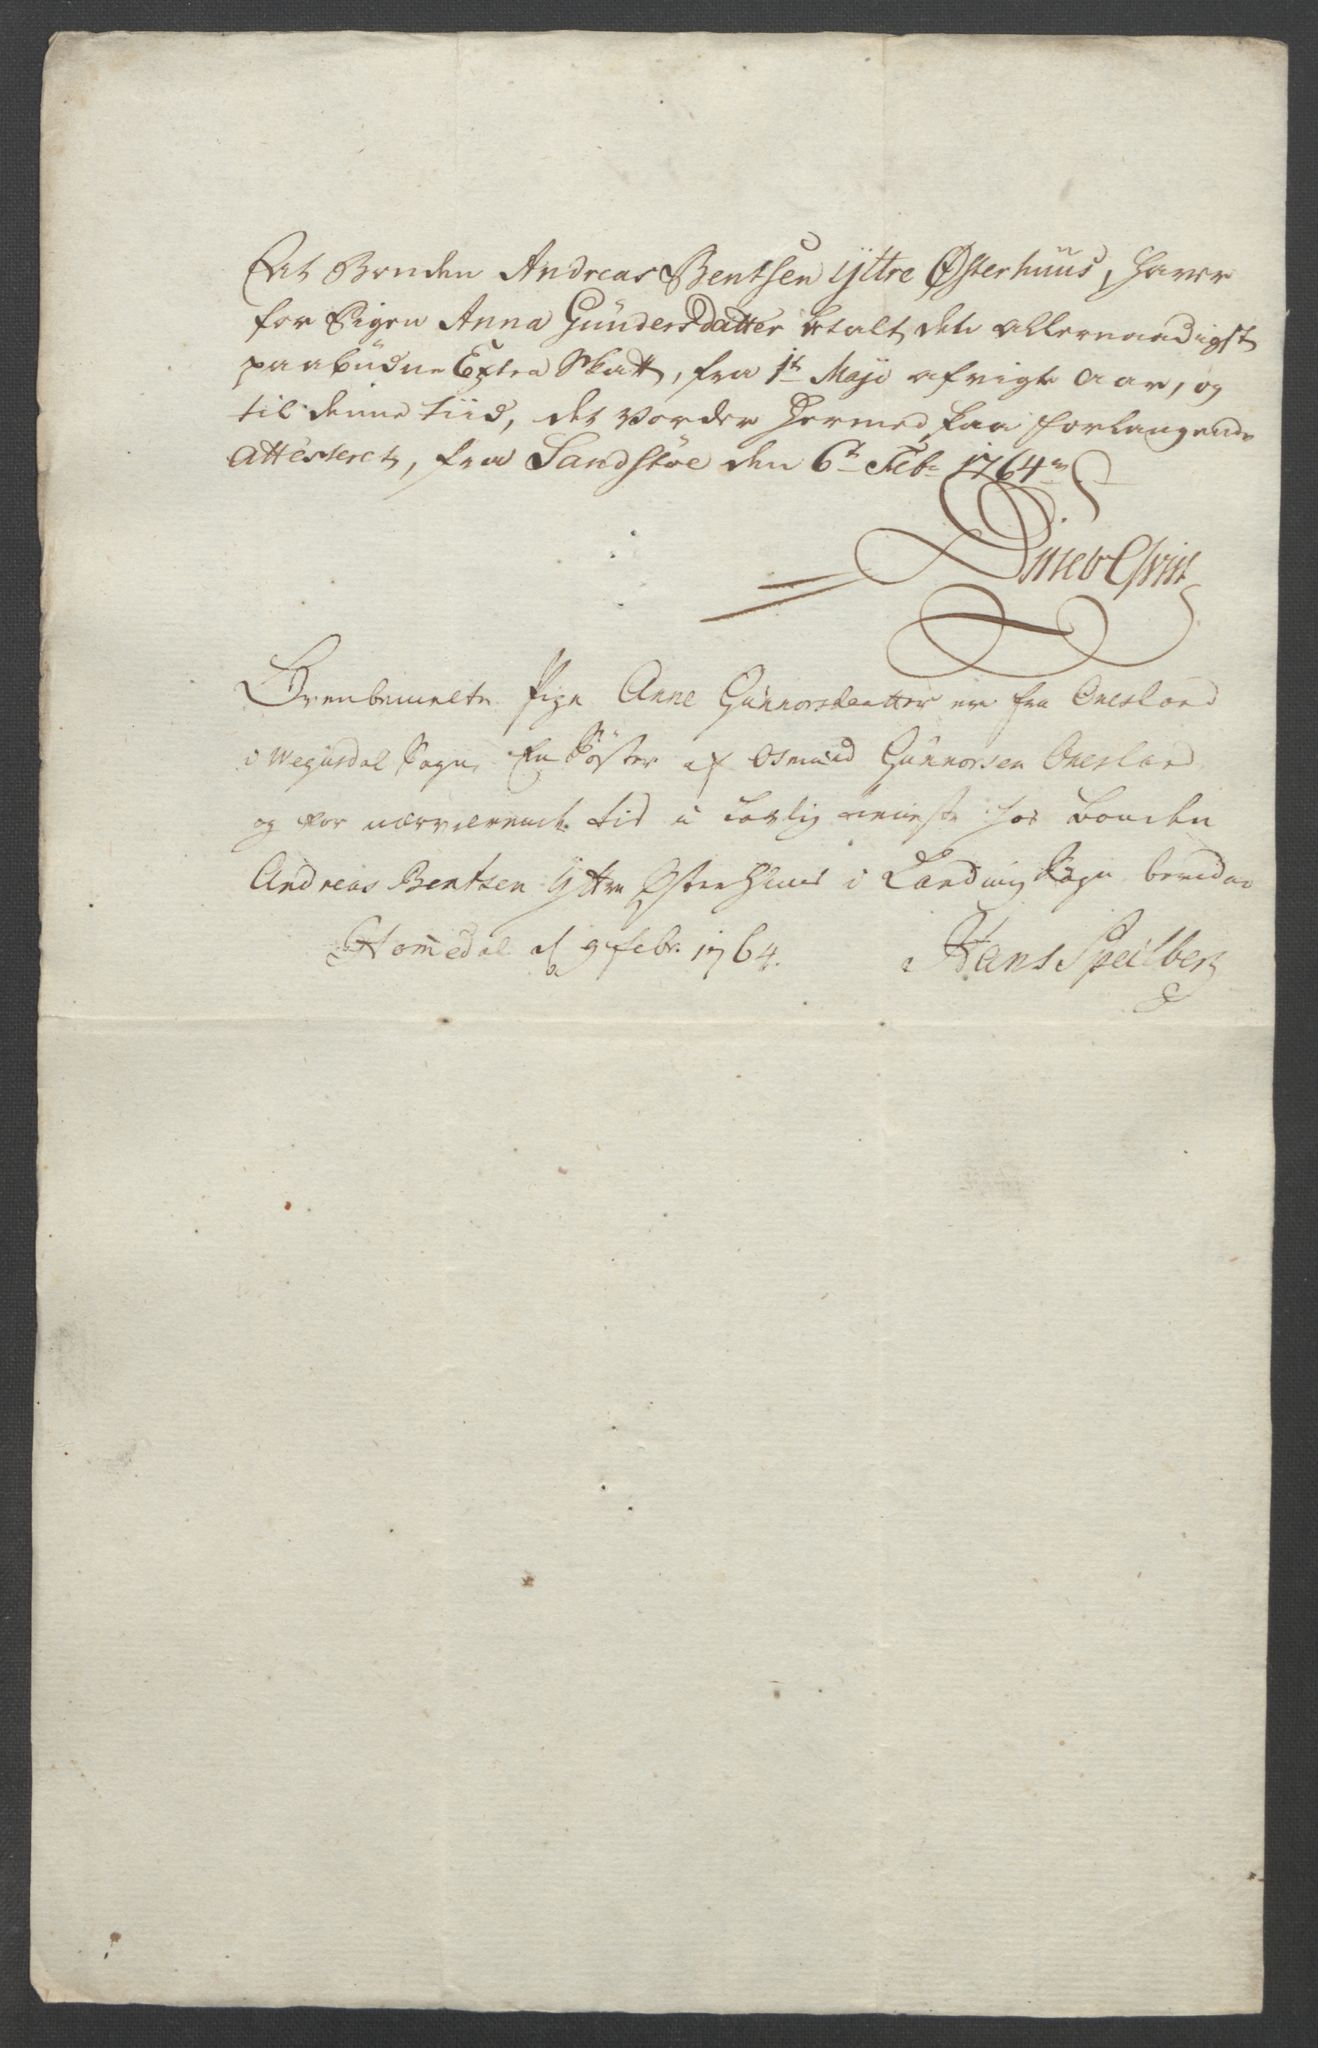 At Bonden Andreas Bentsen ÿttre Østerhuus, haver
for Pigen Anna Gündersdatter betalt den allernaadigst
paabüdne Extra Skatt, fra 1te Maji afvigte Aar, og
til denne tiid, det vorder hermed paa forlangende
Attesteret, fra Sandsköe den 6te Febr 1764
Ovenbemelte Pige Anne Gunnorsdaatter er fra Onesland
i Wegusdal Sogn, En Söster af Osmund Gunnorsen Onesland
og for nærværende tid i lovlig tieneste hos bonden
Andreas Bentsen Ÿttre Østerhuus i Landvig Sogn bevidner
Homedal d 9 febr: 1764.
Hans Speilberg